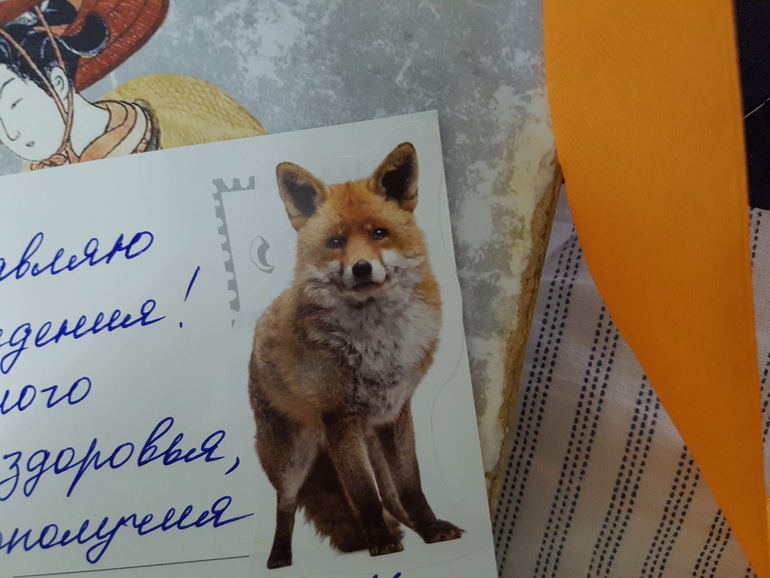 авляю
дения!
ного
здоровья,
ополучия